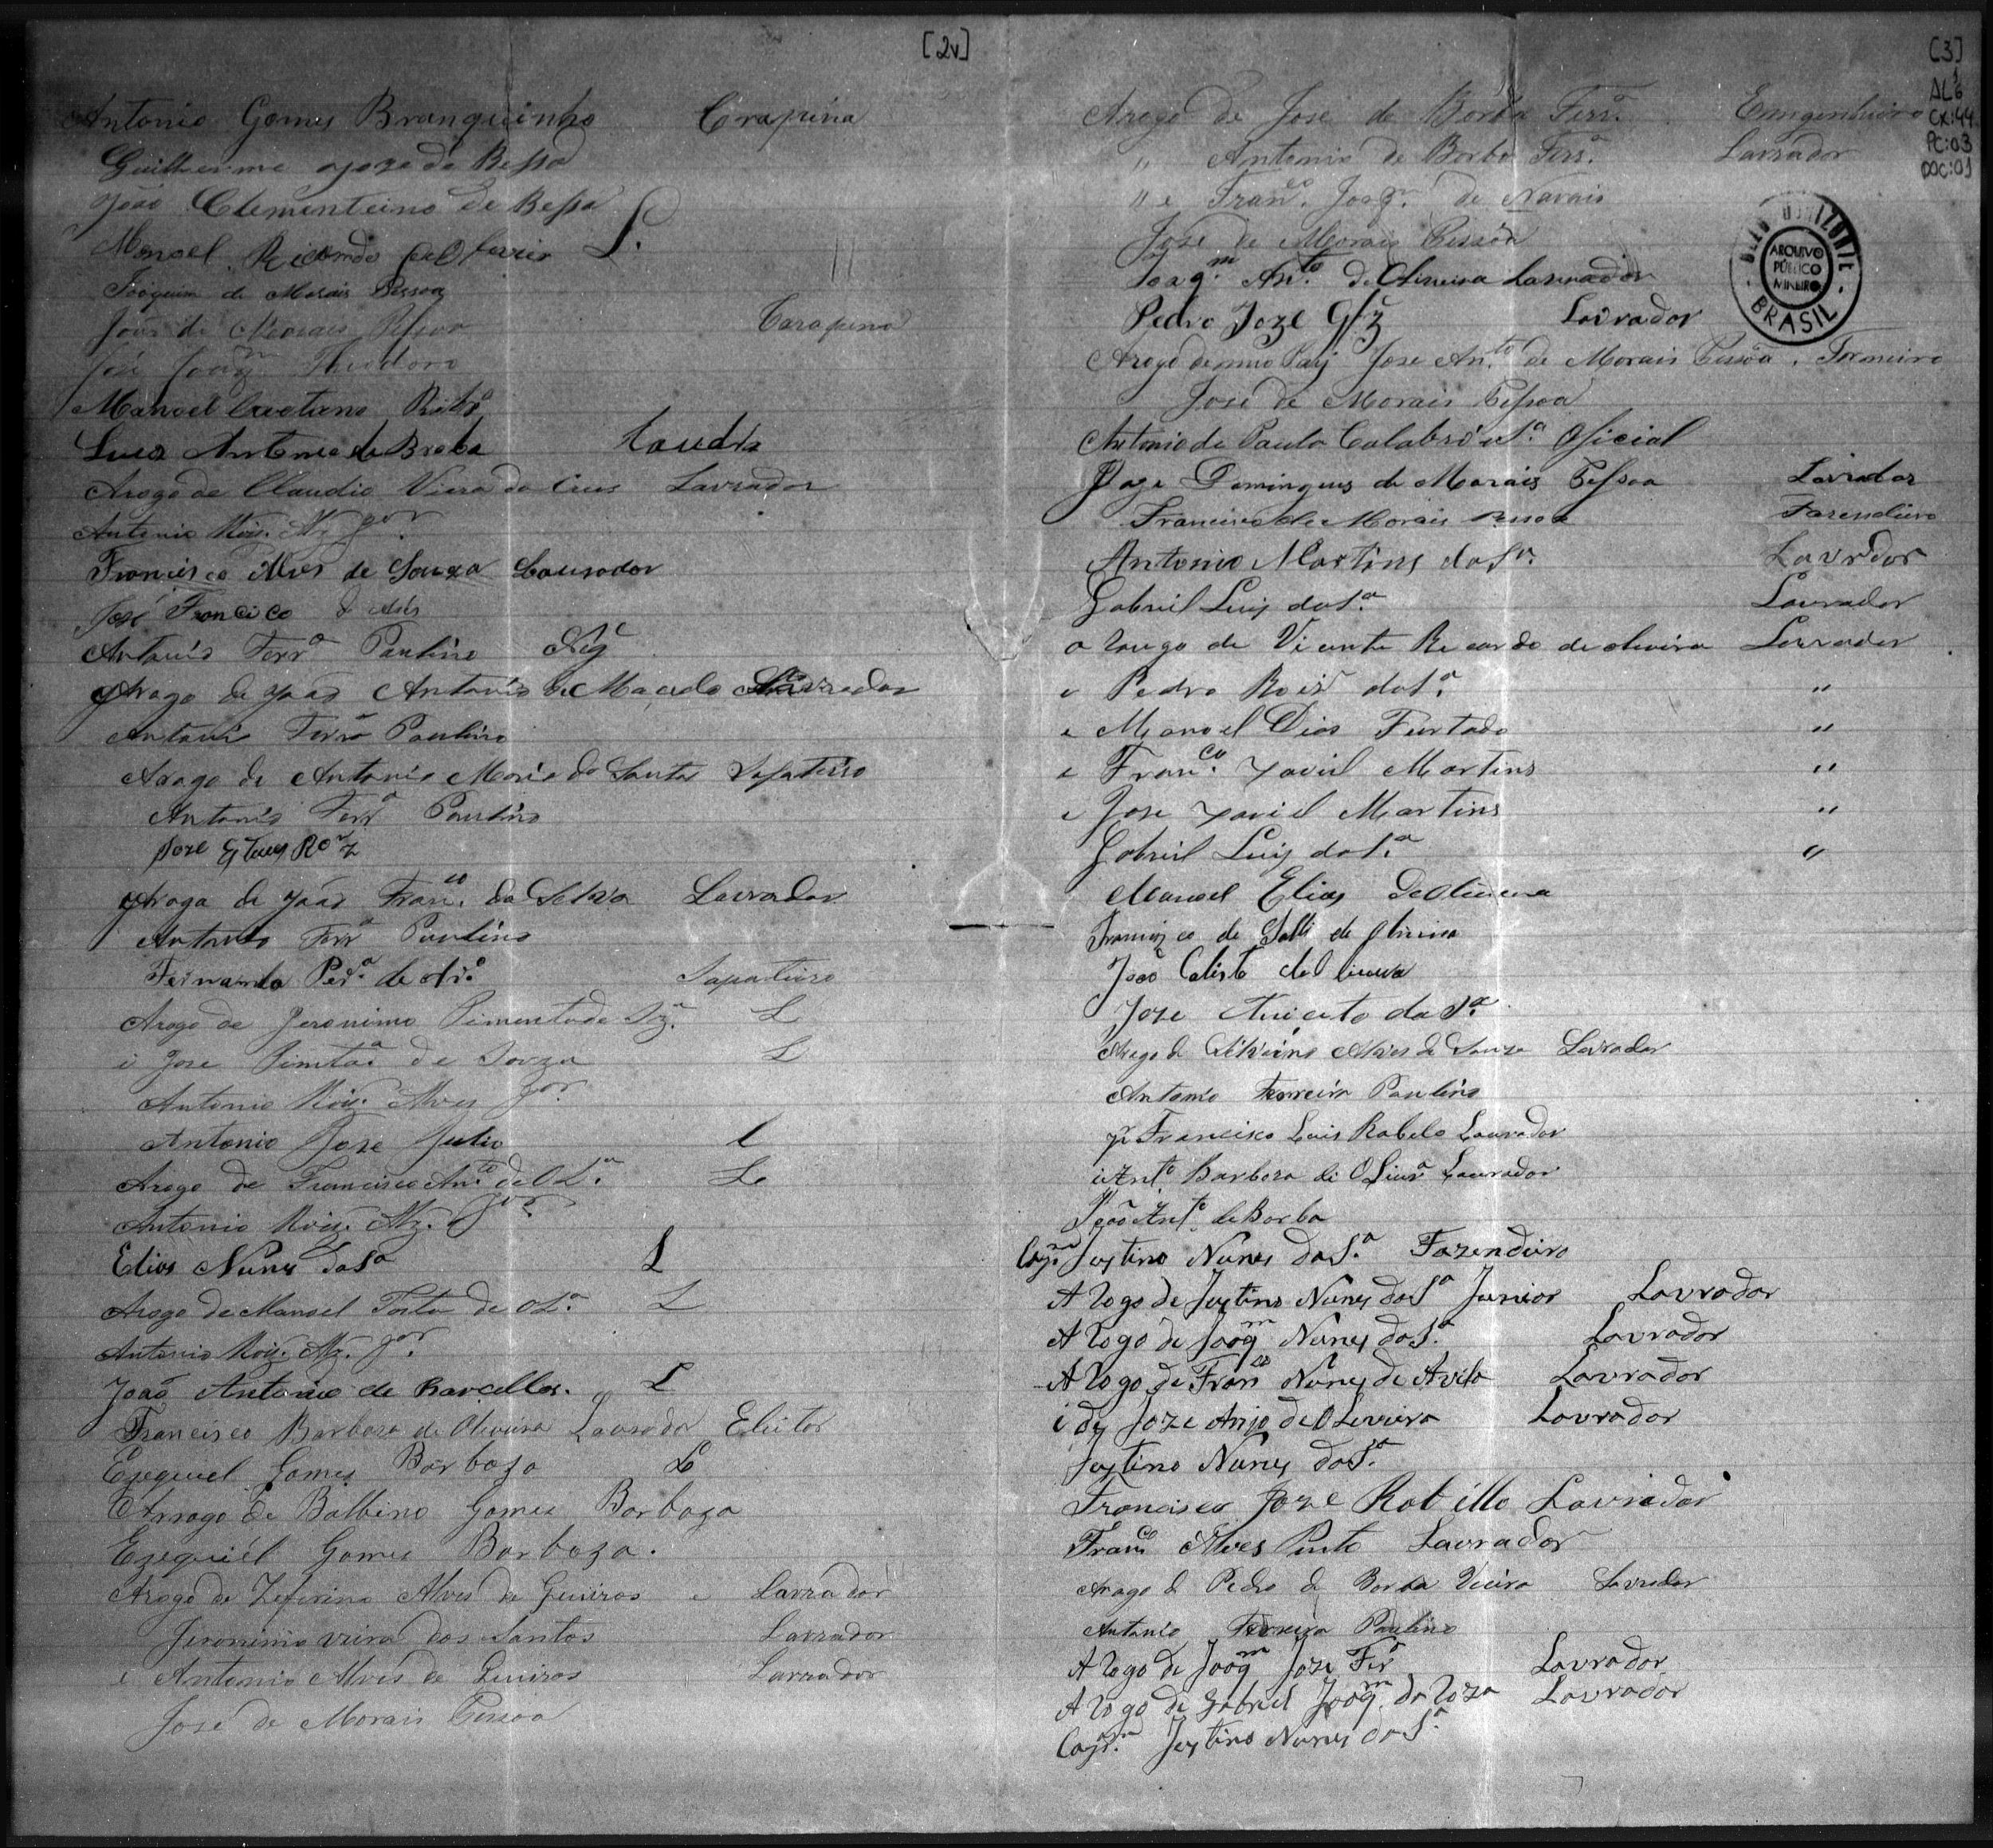 [2v]
Antonio Gomes Branquinho Crapina
Guilherme Joze de Bessa
João Clementino de Bessa
Manoel Ricardo de Oliveira L.
Joaquim de Morais Pessoa
João de Morais Pessoa Carapina
José Joaqm Theodoro
Manoel Caetano Ribro
Luis Antonio de Borba
Arogo de Claudio Viera da Crus Lavrador
Antonio Roiz. Alz. Jor.
Francisco Alves de Souza Lavrador
José Francisco de
Antonio Ferra Paulino Neg
Arogo de João Antonio de Macedo Lavrador
Antonio Ferra Paulino
Arogo de Antonio Maria do Santos Sapateiro
Antonio Ferra Paulino
Joze Roz
Arogo de João Franco. da Silva Lavrador
Antonio Ferra Paulino
Fernando Pera. de Aro. Sapateiro
Arogo de Jeronimo Pimenta de Sza. L
i Jose Pimta de Souza L
Antonio Roiz. Alves Jor.
Antonio Joze Julio L
Arogo de Francisco Anto de OLa. L
Antonio Roiz. Alz. Jor.
Elias Nunes da Sa L
Arogo de Manoel de OLa. L
Antonio Roiz. Alz. Jor.
João Antonio de Barcellos. L
Francisco Barboza de Oliveira Lavrador Eleitor
Ezequiel Gomes Barboza L
Arrogo de Balbino Gomes Barboza
Ezequiél Gomes Barboza.
Arogo de Zeferino Alves de Queiros e Lavrador
Jeronimo vieira dos Santos Lavrador
e Antonio Alves de Queiros Lavrador
José de Morais Pessoa
[3]
AL6
CX:44
PC:03
DOC:01
BELO HORIZONTE
ARQUIVO PÚBLICO MINEIRO
BRASIL
Arogo de José de Borba Ferra. Emgenheiro
" Antonio de Borba Ferra. Lavrador
" e Franco. Joaqm. de Navais
José de Morais Pessôa
Joaqm. Anto. de Oliveira Lavrador
Pedro Joze Glz Lavrador
Arogo de meo Paij Jose Anto. de Morais Pessôa. Torneiro
José de Morais Pessoa
Antonio de Paula Calabró Oficial
Joze Domingues de Morais Pessoa Lavrador
Francisco de Morais Pessoa Fazendeiro
Antonio Martins da Sa. Lavrador
Gabriel Luiz da Sa. Lavrador
a rougo de Vicente Recardo de oliveira Lavrador
e Pedro Rois da Sa. "
e Manoel Dias Furtado "
e Franco. Xaviel Martins "
e Jose Xaviel Martins "
Gabriel Luiz da Sa. "
Manoel Elias de Oliveira
Francisco de Salli de Oliveira
João Calisto de Oliveira
Joze Aniceto da Sa.
Arogo de Alves de Souza Lavrador
Antonio Ferreira Paulino
Francisco Luis Rabelo Lavrador
i Anto. Barboza di OLivra Lavrador
João Anto. de Borba
Justino Nunes da Sa. Fazendeiro
A rogo de Justino Nunes da Sa Junior Lavrador
A rogo de Joaqm Nunes da Sa. Lavrador
A rogo de Franco Nunes de Avila Lavrador
i de Joze Anjo de OLiveira Lavrador
Justino Nunes da Sa.
Francisco Joze Rabello Lavrador
Franco Alves Pinto Lavrador
Arogo de Pedro de Borba Vieira Lavrador
Antonio Ferreira Paulino
A rogo de Joaqm Joze Fera Lavrador
A rogo de Gabriel Joaqm da roza Lavrador
Justino Nunes da Sa.